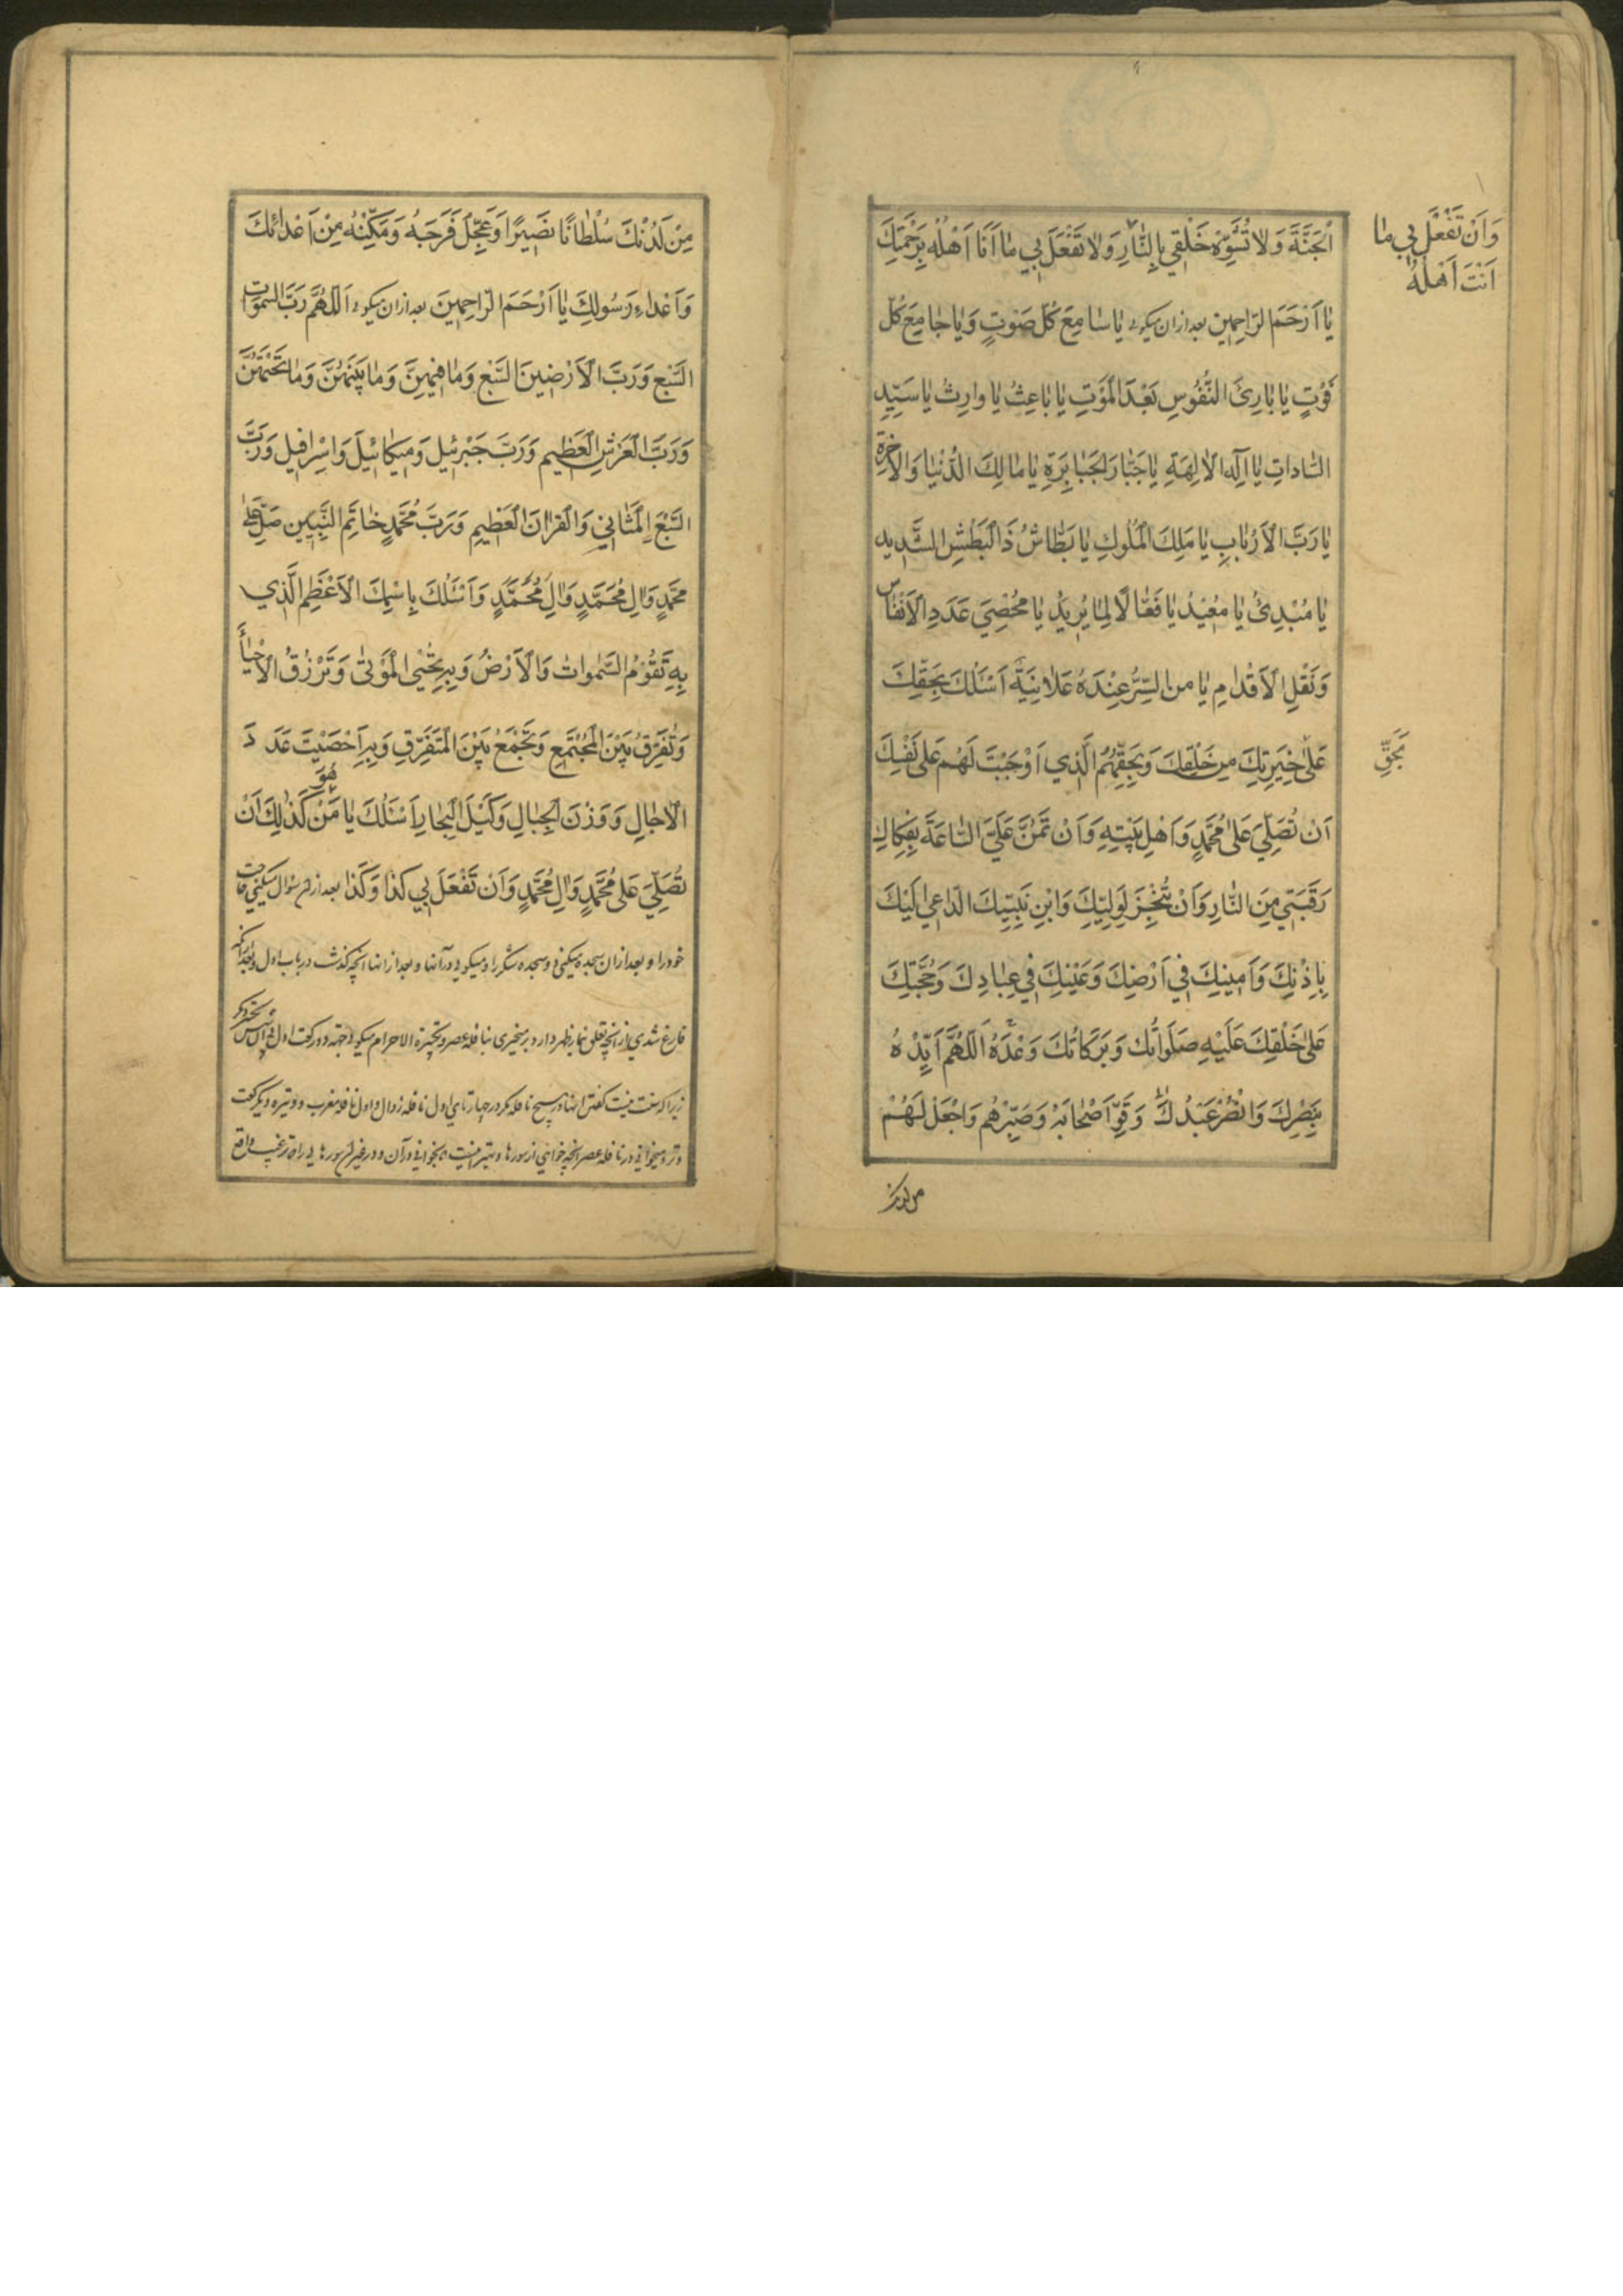 اَلْجَنَّةَ وَلاٰ تُشَوِّهْ خَلْقِي بِالنّٰارِ وَلاٰ تَفْعَلْ بِي مٰا اَنَا اَهْلُهُ بِرَحْمَتِكَ
وَاَنْ تَفْعَلَ بِي مٰا
اَنْتَ اَهْلُهُ
يٰا اَرْحَمَ الرّٰاحِمِينَ بعد ازان میکوئی يٰا سٰامِعَ كُلِّ صَوْتٍ وَيٰا جٰامِعَ كُلِّ
فَوْتٍ يٰا بٰارِئَ النُّفُوسِ بَعْدَ الْمَوْتِ يٰا بٰاعِثُ يٰا وٰارِثُ يٰا سَيِّدِ
السّٰادٰاتِ يٰا اِلٰهَ الاٰلِهَةِ يٰا جَبّٰارَ الْجَبٰابِرَةِ يٰا مٰالِكَ الدُّنْيٰا وَالْاٰخِرَةِ
يٰا رَبَّ الْاَرْبٰابِ يٰا مَلِكَ الْمُلُوكِ يٰا بَطّٰاشُ ذَا الْبَطْشِ الشَّدِيدِ
يٰا مُبْدِئُ يٰا مُعِيْدُ يٰا فَعّٰالاً لِمٰا يُرِيدُ يٰا مُحْصِيَ عَدَدِ الْاَنْفٰاسِ
وَنَقْلِ الْاَقْدٰامِ يٰا مَنِ السِّرُّ عِنْدَهُ عَلاٰنِيَةٌ اَسْئَلُكَ بِحَقِّكَ
عَلىٰ خِيَرَتِكَ مِنْ خَلْقِكَ وَبِحَقِّهُمُ الَّذِي اَوْجَبْتَ لَهُمْ عَلىٰ نَفْسِكَ
بِحَقِّ
اَنْ تُصَلِّيَ عَلىٰ مُحَمَّدٍ وَاَهْلِ بَيْتِهِ وَاَنْ تَمُنَّ عَلَيَّ السّٰاعَةَ بِفِكٰاكِ
رَقَبَتِي مِنَ النّٰارِ وَاَنْ تُنْجِزَ لِوَلِيِّكَ وَابْنِ نَبِيِّكَ الدّٰاعِي اِلَيْكَ
بِاِذْنِكَ وَاَمِينِكَ فِي اَرْضِكَ وَعَيْنِكَ فِي عِبٰادِكَ وَحُجَّتِكَ
عَلىٰ خَلْقِكَ عَلَيْهِ صَلَوٰاتُكَ وَبَرَكٰاتُكَ وَعْدَهُ اَللّٰهُمَّ اَيِّدْهُ
بِنَصْرِكَ وَانْصُرْ عَبْدَكَ وَقَوِّ اَصْحٰابَهُ وَصَبِّرْهُمْ وَاجْعَلْ لَهُمْ
من لدنك
مِنْ لَدُنْكَ سُلْطٰانًا نَصِيرًا وَعَجِّلْ فَرَجَهُ وَمَكِّنْهُ مِنْ اَعْدٰائِكَ
وَاَعْدٰاءِ رَسُولِكَ يٰا اَرْحَمَ الرّٰاحِمِينَ بعد ازان میکوئی اَللّٰهُمَّ رَبَّ السَّمٰوٰاتِ
السَّبْعِ وَرَبَّ الْاَرْضِينَ السَّبْعِ وَمٰا فِيهِنَّ وَمٰا بَيْنَهُنَّ وَمٰا تَحْتَهُنَّ
وَرَبَّ الْعَرْشِ الْعَظِيمِ وَرَبَّ جَبْرَئِيلَ وَمِيكٰائِيلَ وَاِسْرٰافِيلَ وَرَبَّ
السَّبْعِ الْمَثٰانِي وَالْقُرْاٰنِ الْعَظِيمِ وَرَبَّ مُحَمَّدٍ خٰاتَمِ النَّبِيِّينَ صَلِّ عَلىٰ
مُحَمَّدٍ وَاٰلِ مُحَمَّدٍ وَاٰلِ مُحَمَّدٍ وَاَسْئَلُكَ بِاسْمِكَ الْاَعْظَمِ الَّذِي
بِهِ تَقُوْمُ السَّمٰوٰاتُ وَالْاَرْضُ وَبِهِ تُحْيِي الْمَوْتىٰ وَتَرْزُقُ الْاَحْيٰاءَ
وَتُفَرِّقُ بَيْنَ الْمُجْتَمِعِ وَتَجْمَعُ بَيْنَ الْمُتَفَرِّقِ وَبِهِ اَحْصَيْتَ عَدَدَ
الْاٰجٰالِ وَوَزْنَ الْجِبٰالِ وَكَيْلَ الْبِحٰارِ اَسْئَلُكَ يٰا مَنْ هُوَ كَذٰلِكَ اَنْ
تُصَلِّيَ عَلىٰ مُحَمَّدٍ وَاٰلِ مُحَمَّدٍ وَاَنْ تَفْعَلَ بِي كَذٰا وَكَذٰا بعد ازان سؤال میکنی حاجت
خود را و بعد ازان سجده میکنی دو سجده شکر را و میکوئی در آنها و بعد از انها انچه کذشت در باب اول و بعد از انکه
فارغ شدی از انچه تعلق بنماز ظهر دارد برمیخیزی بنافله عصر و تکبیرة الاحرام میکوئی جهة دو رکعت اول
زیرا که سنت نیست کفتن انها در هیچ نافله مکر در چهار تای اول نافله زوال و اول نافله مغرب و وتیره و یک رکعت
وتر و میخوانی در نافله عصر انچه خواهی از سورها